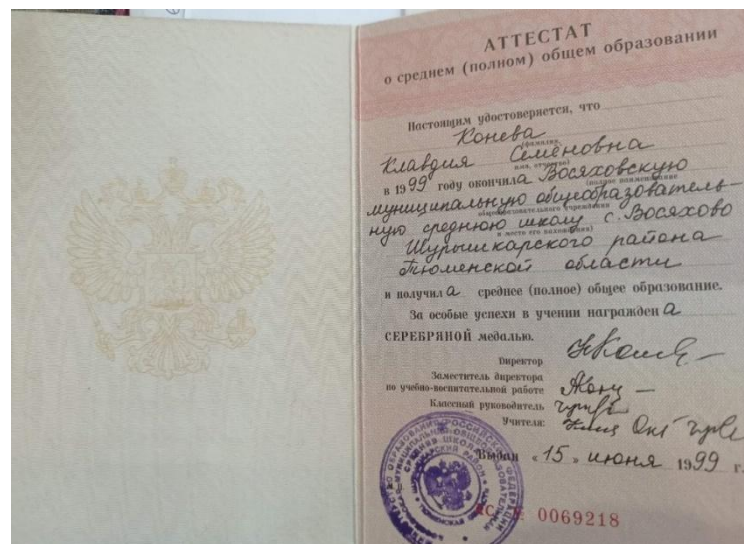 АТТЕСТАТ
о среднем (полном) общем образовании
Настоящим удостоверяется, что
Конева
(фамилия,
Клавдия Семёновна
имя, отчество)
в 1999 году окончила Восяховскую
(полное наименование
муниципальную общеобразователь-
общеобразовательного учреждения
ную среднюю школу с. Восяхово
и место его нахождения)
Шурышкарского района
Тюменской области
и получила среднее (полное) общее образование.
За особые успехи в учении награждена
СЕРЕБРЯНОЙ медалью.
Директор
Заместитель директора
по учебно-воспитательной работе
Классный руководитель
Учителя:
Выдан «15» июня 1999 г.
0069218